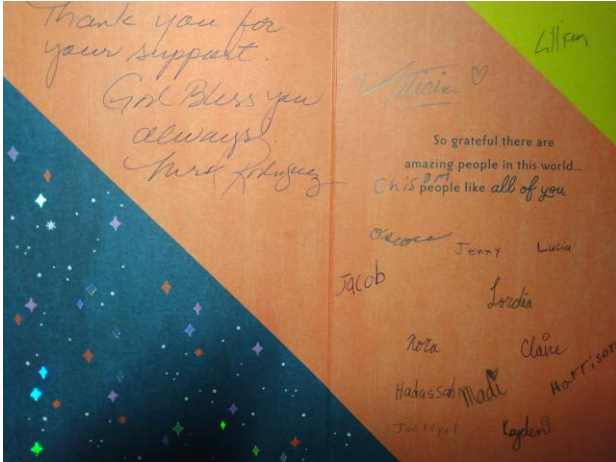 Thank you for
your support.
God Bless you
always
Mrs. Rodriguez
Lillian
So grateful there are
amazing people in this world...
people like all of you
Chisom
Jenny
Lucia
Jacob
Lordia
Nora
Claire
Harrison
Hadassah
Madi
Kayden